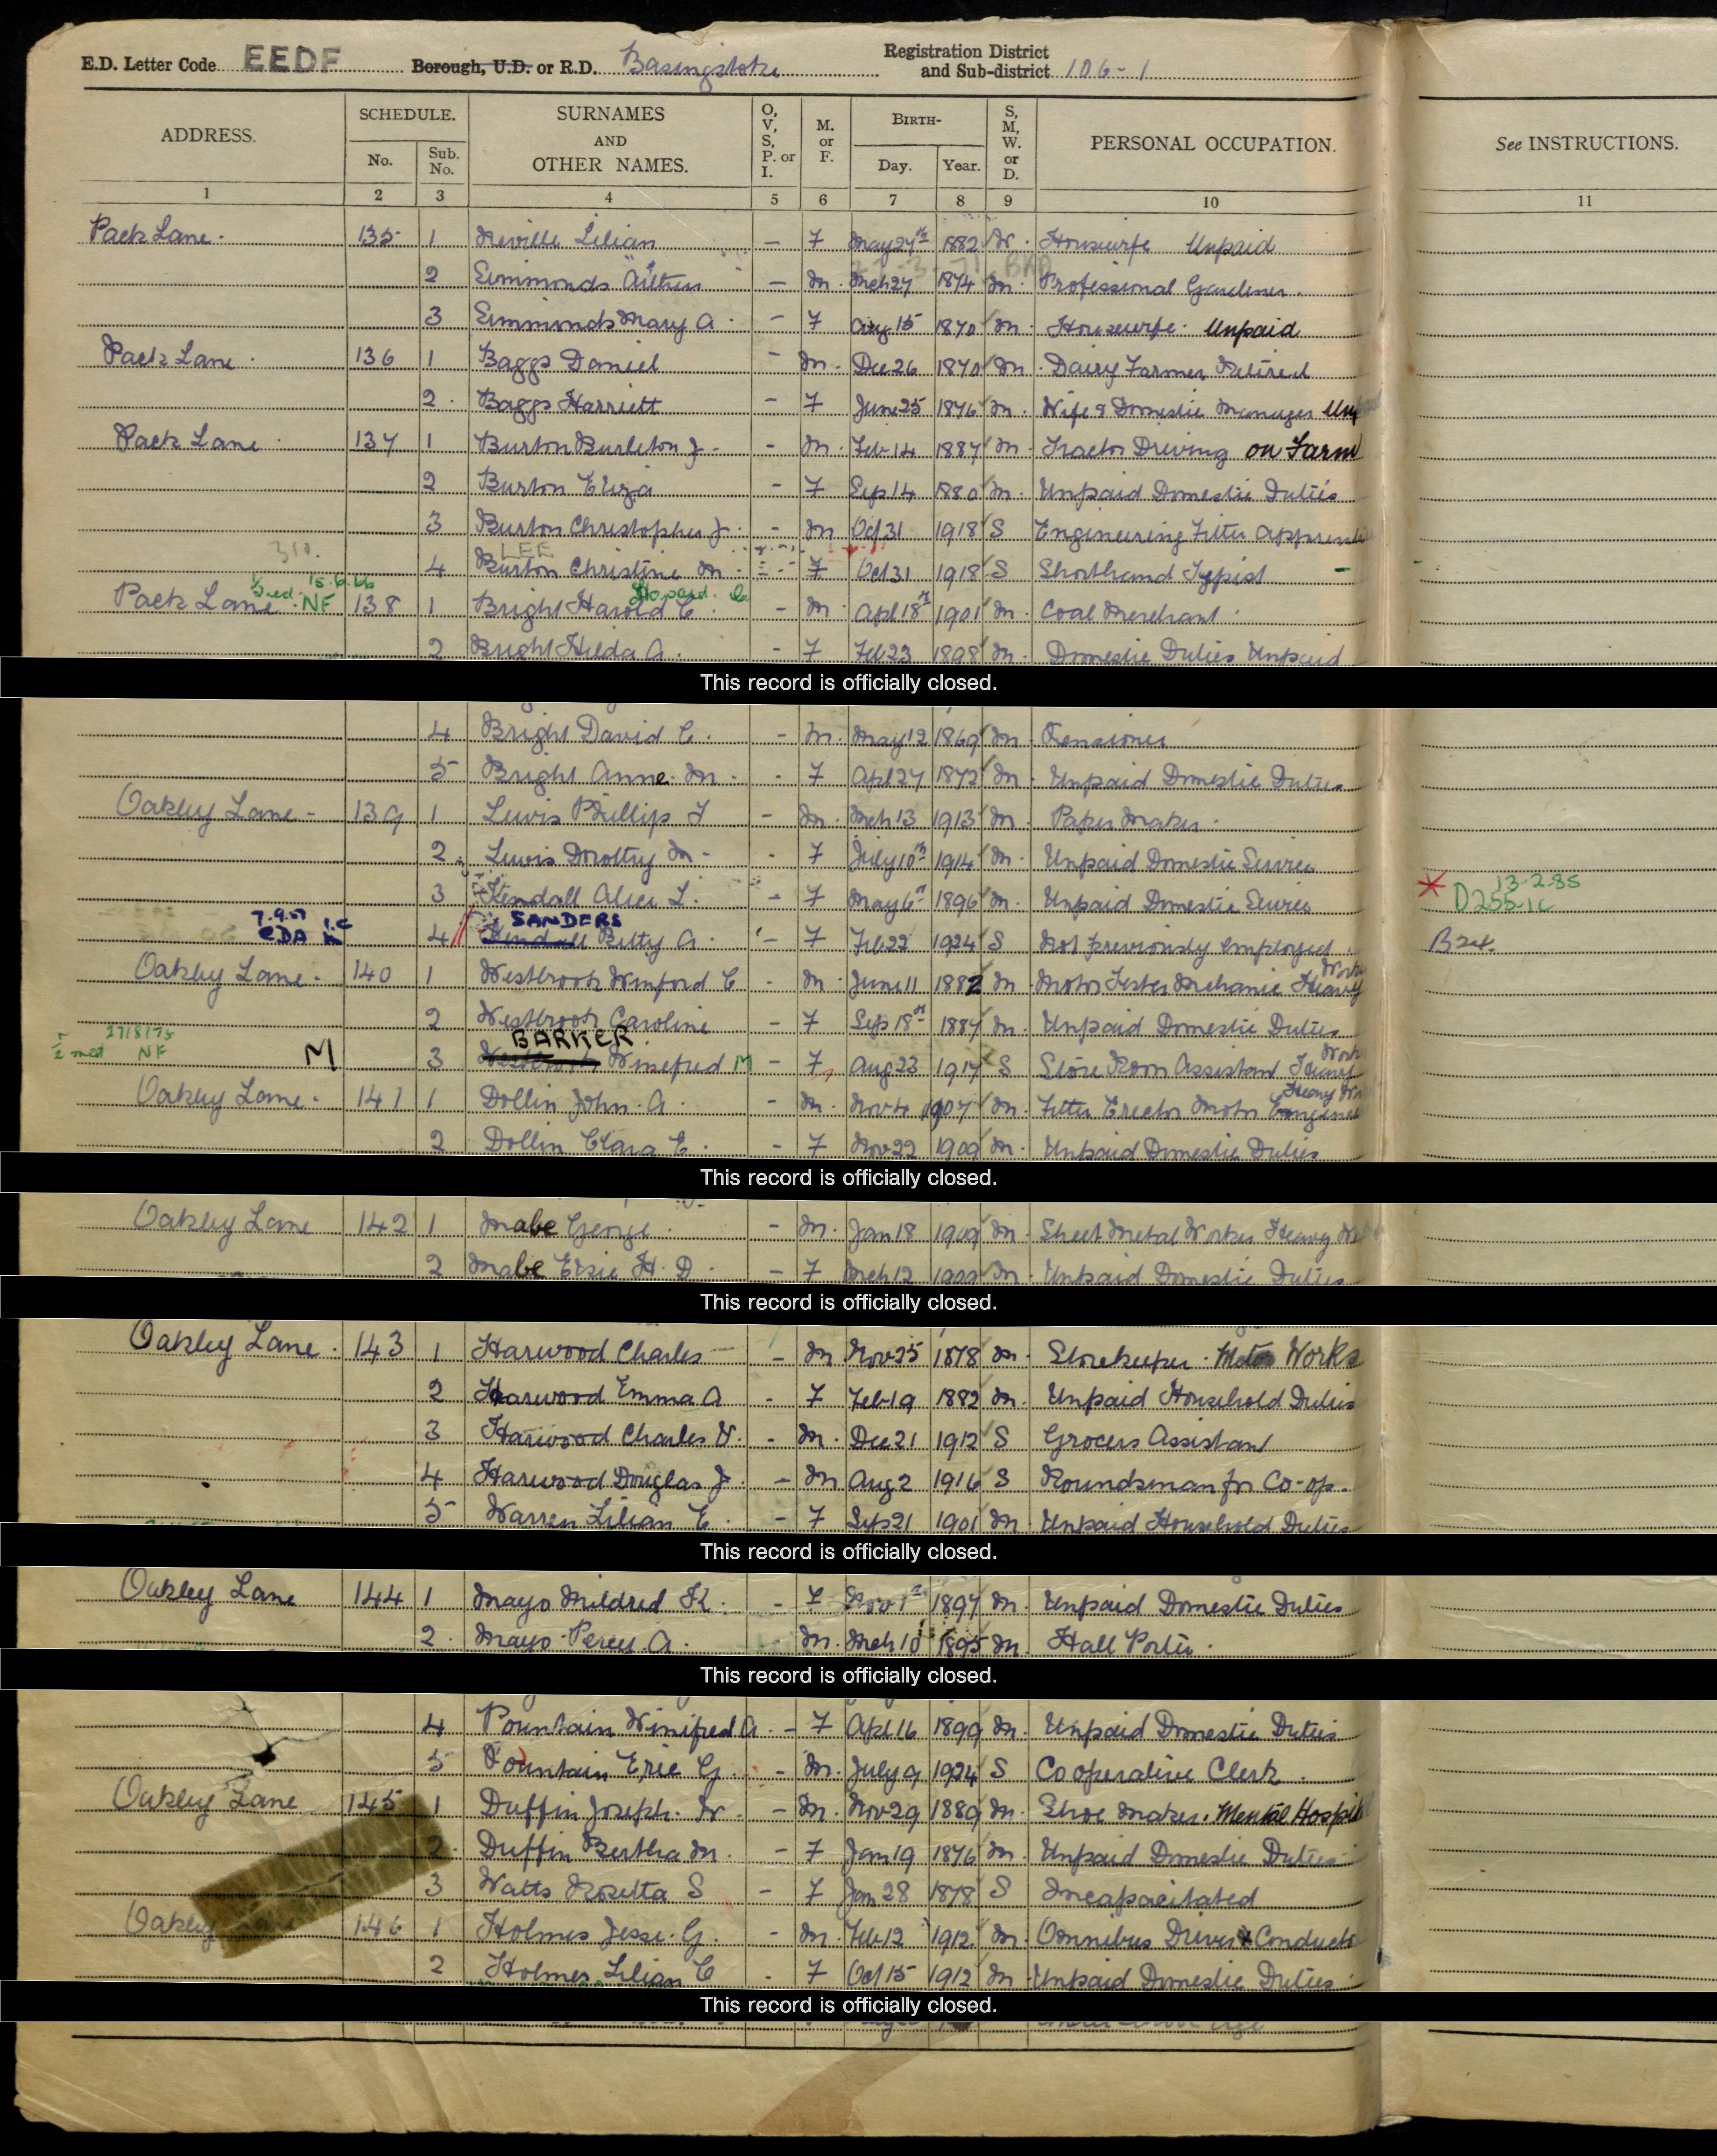 E.D. Letter Code EEDF Borough, U.D. or R.D. Basingstoke Registration District and Sub-district 106-1
ADDRESS. SCHEDULE. No. Sub. No. SURNAMES AND OTHER NAMES. O, V, S, P. or I. M. or F. BIRTH- Day. Year. S, M, W. or D. PERSONAL OCCUPATION. See INSTRUCTIONS.
1 2 3 4 5 6 7 8 9 10 11
Pack Lane. 135 1 Neville Lilian – F May 27th 1882 W. Housewife Unpaid
2 Simmonds Arthur – M. Mch 27 1874 M. Professional Gardener.
3 Simmonds Mary A. – F Aug 15 1870 M. Housewife. Unpaid
Pack Lane. 136 1 Baggs Daniel – M. Dec 26 1870 M. Dairy Farmer Retired
2. Baggs Harriett – F June 25 1876 M. Wife & Domestic Manager
Pack Lane. 137 1 Burton Burleton J. – M. Feb 14 1887 M. Tractor Driving on Farm
2 Burton Eliza – F Sep 14 1880 M. Unpaid Domestic Duties
3 Burton Christopher J. – M Oct 31 1918 S Engineering Fitter
310. LEE
4 Burton Christine M. F Oct 31 1918 S Shorthand Typist –
15.6.66
Pack Lane. NF 138 1 Bright Harold C. – M. Apl 18th 1901 M. Coal Merchant.
2 Bright Hilda A. – F Feb 23 1898 M. Domestic Duties Unpaid
This record is officially closed.
4 Bright David C. – M. May 12 1869 M. Pensioner
5 Bright Anne. M. – F Apl 27 1872 M. Unpaid Domestic Duties
Oakley Lane – 139 1 Lewis Phillip J – M. Mch 13 1913 M. Paper Maker.
2. Lewis Dorothy M – F July 10th 1914 M. Unpaid Domestic Duties
3 Kendall Alice L. – F May 6th 1896 M. Unpaid Domestic Duties * 13.2.85
SANDERS
CDA 4 Kendall Betty A. – F Feb 22 1924 S Not previously employed.
Oakley Lane. 140 1 Westbrook Winford C – M. June 11 1882 M. Motor Tester Mechanic Heavy Work
2 Westbrook Caroline – F Sep 18th 1887 M. Unpaid Domestic Duties
27/8/75 BARKER
NF M 3 Westbrook Winefred M – F Aug 23 1917 S Store Room Assistant Heavy Work
Oakley Lane. 141 1 Dollin John. A. – M. Nov 4 1907 M. Fitter Erector Motor Engines Heavy
2 Dollin Clara E. – F Nov 22 1909 M. Unpaid Domestic Duties
This record is officially closed.
Oakley Lane 142 1 Mabe George. – M. Jan 18 1909 M. Sheet Metal Worker Heavy
2 Mabe Elsie H. D. – F Mch 12 1909 M. Unpaid Domestic Duties
This record is officially closed.
Oakley Lane. 143 1 Harwood Charles – M Nov 25 1878 M. Storekeeper. Motor Works
2 Harwood Emma A – F Feb 19 1882 M. Unpaid Household Duties
3 Harwood Charles W. – M. Dec 21 1912 S Grocers Assistant
4 Harwood Douglas J. – M Aug 2 1916 S Roundsman for Co-op.
5 Warren Lilian E. – F Sep 21 1901 M. Unpaid Household Duties
This record is officially closed.
Oakley Lane 144 1 Mayo Mildred K. – F Nov 1st 1897 M. Unpaid Domestic Duties
2. Mayo Percy A. M. Mch 10 1895 M. Hall Porter.
This record is officially closed.
4 Pountain Winifred A. – F Apl 16 1899 M. Unpaid Domestic Duties
5 Pountain Eric G. – M. July 9 1924 S Cooperative Clerk.
Oakley Lane 145 1 Duffin Joseph. W. – M. Nov 29 1889 M. Shoe Maker. Mental Hospital
2. Duffin Bertha M. – F Jan 19 1876 M. Unpaid Domestic Duties
3 Watts Rosetta S – F Jan 28 1878 S Incapacitated
Oakley 146 1 Holmes Jesse. G. – M. Feb 12 1912 M. Omnibus Driver &
2 Holmes Lilian C – F Oct 15 1912 M. Unpaid Domestic Duties.
This record is officially closed.